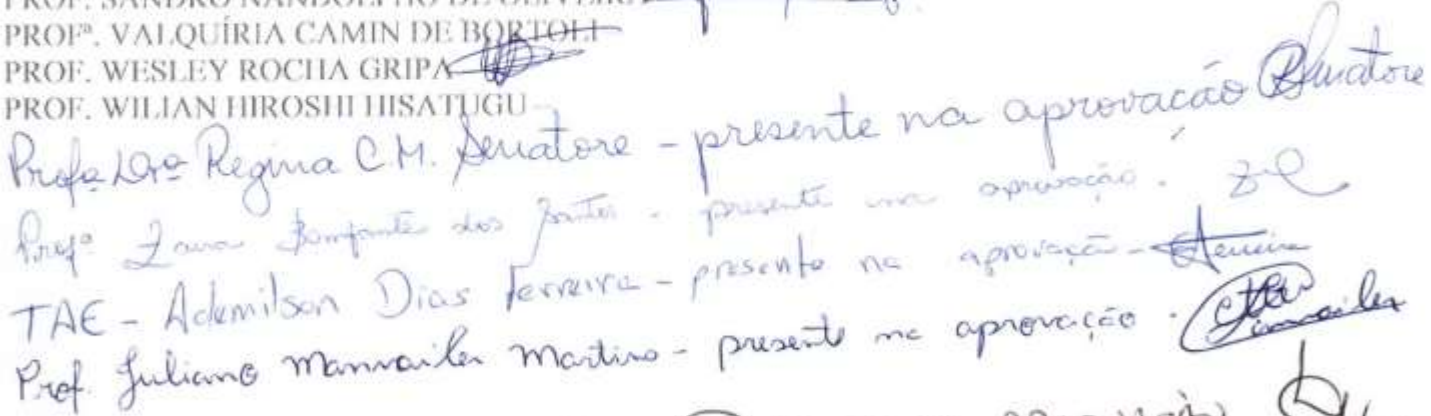 PROF. SANDRO NANDOLPHO DE OLIVEIRA
PROFª. VALQUÍRIA CAMIN DE BORTOLI
PROF. WESLEY ROCHA GRIPA
PROF. WILIAN HIROSHI HISATUGU
Profa Drª Regina C.M. Senatore - presente na aprovação RSenatore
Profª Zaira Bomfante dos Santos - presente na aprovação.
TAE - Ademilson Dias Ferreira - presente na aprovação - Ferreira
Prof. Juliano Manvailer Martins - presente na aprovação. Manvailer